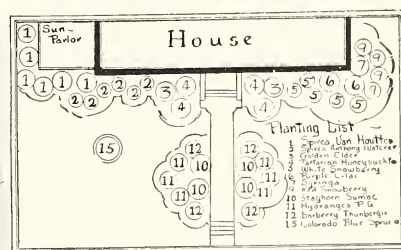 Sun-
Parlor
House
1
1
1
1
1
1
2
2
2
2
2
2
3
4
4
4
4
3
5
5
5
5
5
6
6
7
9
9
9
15
12
11
10
11
11
10
11
10
11
12
12
11
10
11
10
11
10
11
12
Planting List
1 Spirea Van Houttei
2 Spirea Anthony Waterer
3 Golden Elder
4 Tartarian Honeysuckle
5 White Snowberry
6 Purple Lilac
7 Syringa
9 Red Snowberry
10 Staghorn Sumac
11 Hydrangea P G
12 Barberry Thunbergii
15 Colorado Blue Spruce